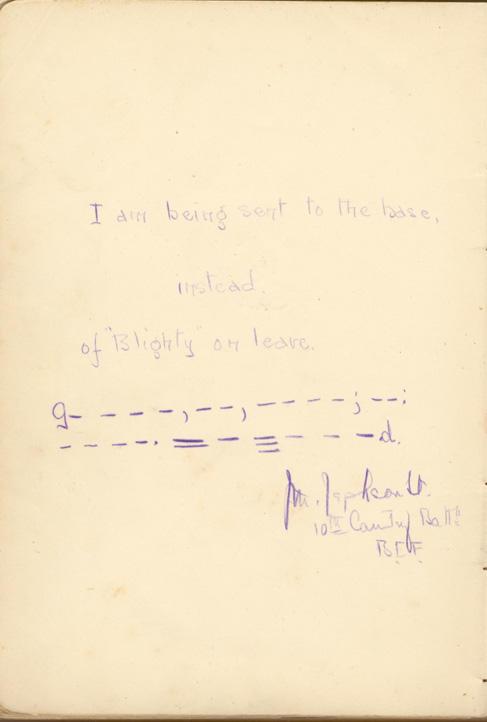 I am being sent to the base,
instead.
of "Blighty" on leave.
G- - - - -, - -, - - - - -; - -:
- - - - -. = - ≡ - - - -d.
Lt.
10th Can Inf Battn
B.E.F.